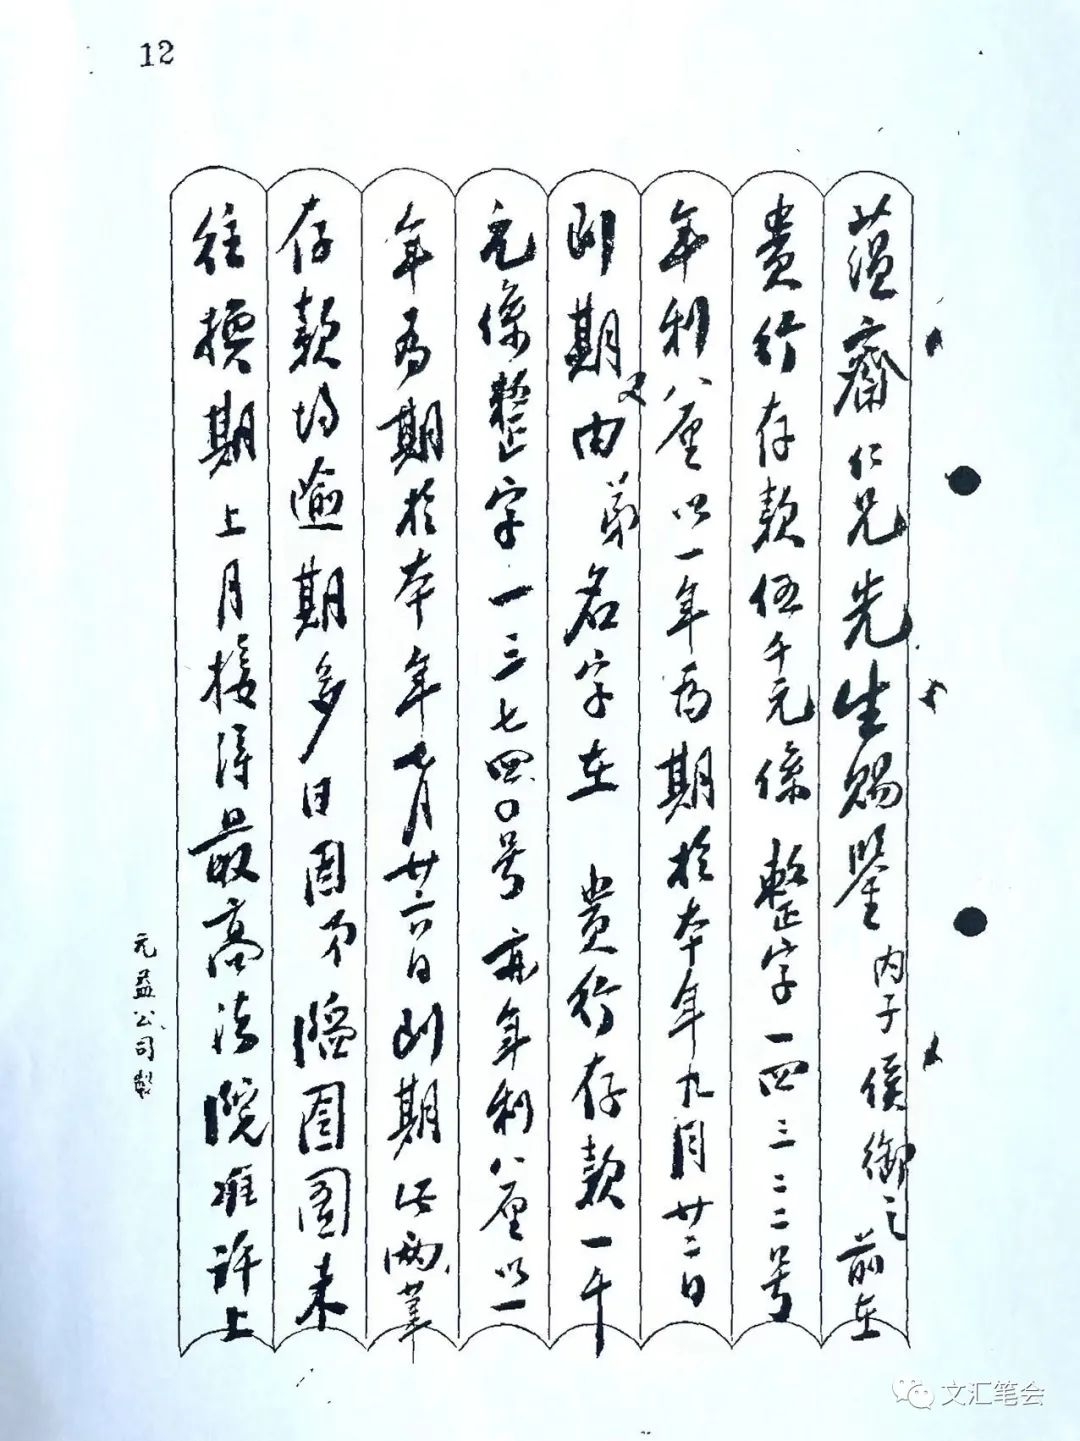 12
蕴齋仁兄先生賜鑒内子侯御之前在
貴行存款伍千元係整字一四三二二号
年利八厘以一年為期於本年九月廿二日
到期又由弟名字在 貴行存款一千
元係整字一三七四〇号亦年利八厘以一
年為期於本年七月廿六日到期此兩筆
存款均逾期多日因弟陷囹圄未
往換期上月接得最高法院准許上
元益公司製
文汇笔会